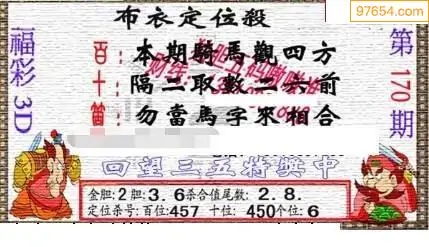 97654.com
布衣定位殺
福彩3D
第170期
百：本期騎馬觀四方
十：隔二取數二六前
個：勿當馬字來相合
回望三五特與中
金胆:2胆:3.6杀合值尾数:2.8.
定位杀号:百位:457 十位:450个位:6